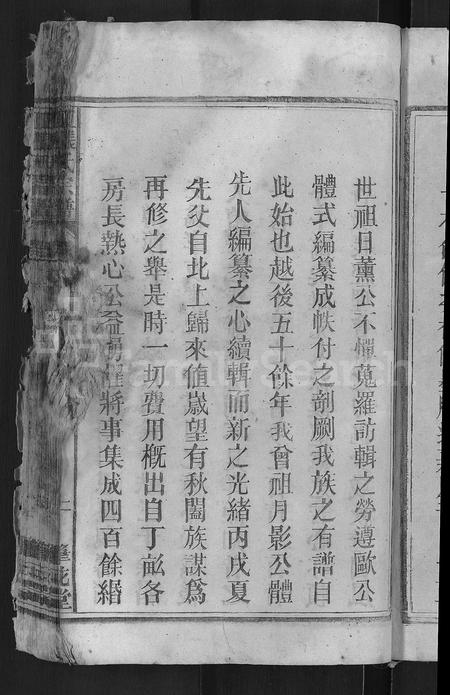 世祖日薰公不憚蒐羅訪輯之勞遵歐公
體式編纂成帙付之剞劂我族之有譜自
此始也越後五十餘年我會祖月影公體
先人編纂之心續輯而新之光緒丙戌夏
先父自北上歸來值歲望有秋闔族謀爲
再修之舉是時一切費用概出自丁畝各
房長熱心公益踴躍將事集成四百餘緡
二
FamilySearch